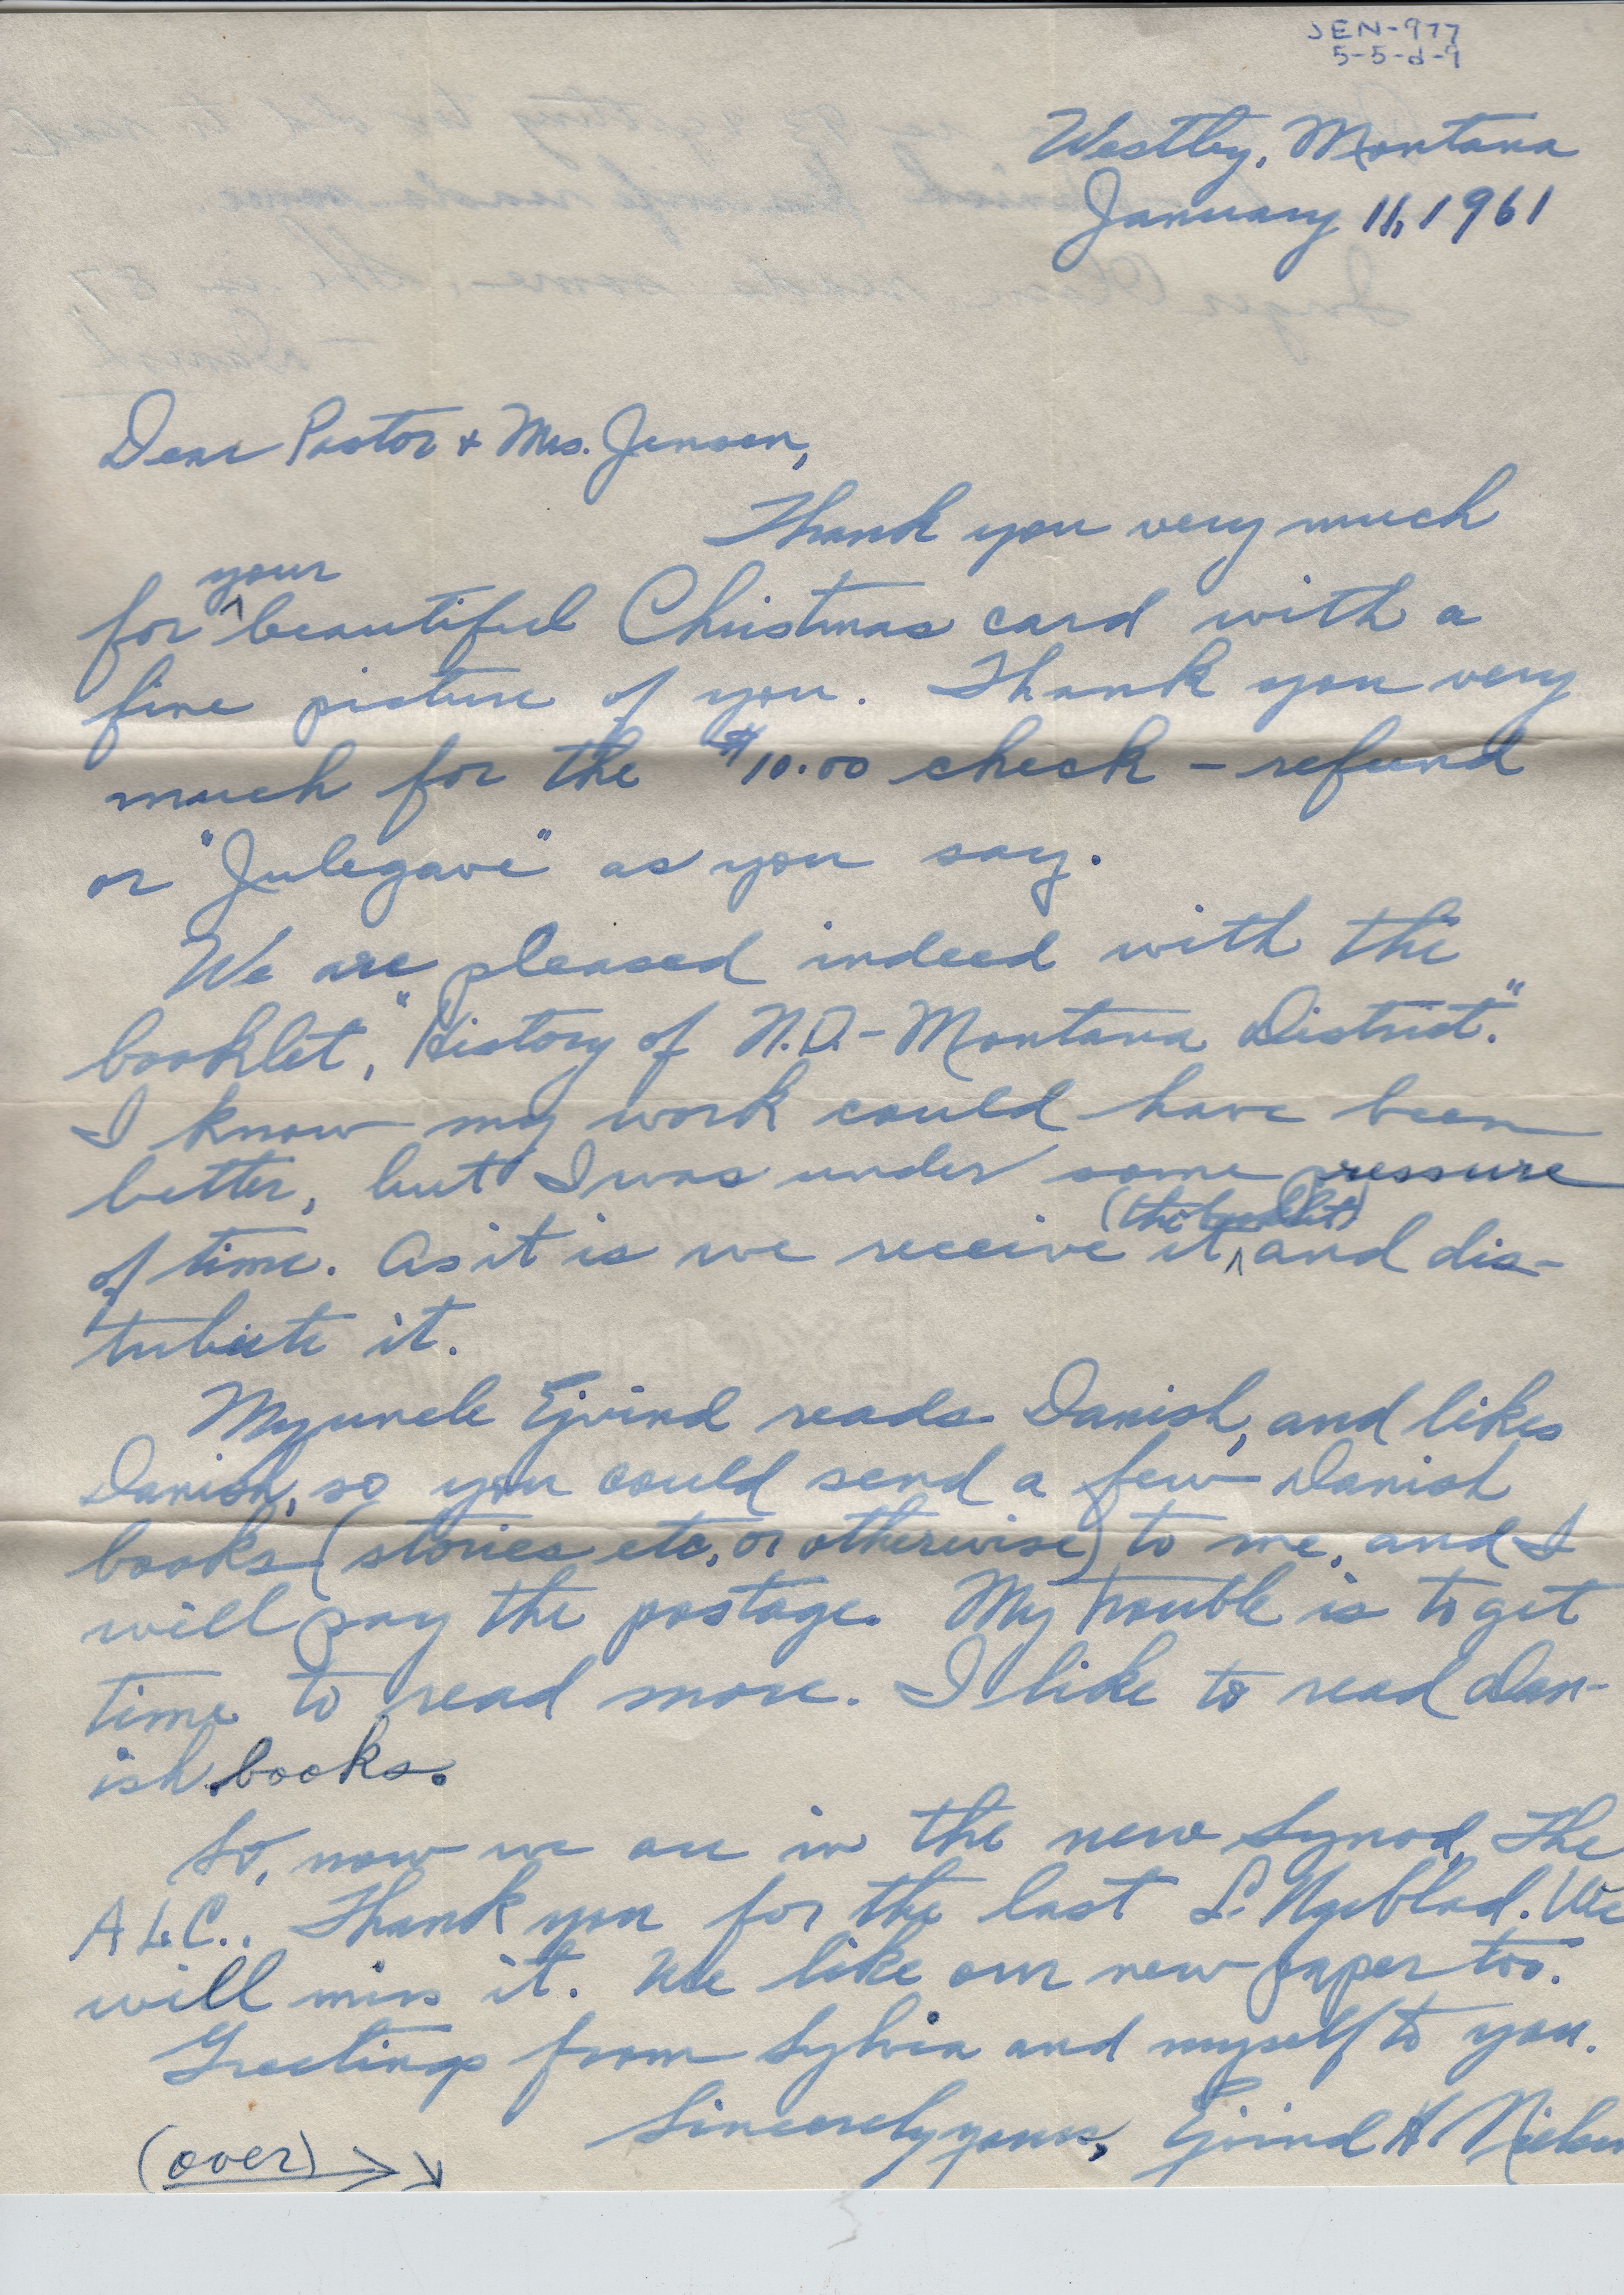 JEN-977
5-5-d-9
Westby, Montana
January 11, 1961
Dear Pastor & Mrs. Jensen,
Thank you very much
your
for ^ beautiful Christmas card with a
fine picture of you. Thank you very
much for the $10.00 check - refund
or "Julegave" as you say.
We are pleased indeed with the
booklet, "History of N.D.-Montana District."
I know my work could have been
better, but I was under some pressure
(the booklet)
of time. As it is we receive it ^ and dis-
tribute it.
My uncle Ejvind reads Danish, and likes
Danish, so you could send a few Danish
books (stories etc, or otherwise) to me, and I
will pay the postage. My trouble is to get
time to read more. I like to read Dan-
ish books.
So, now we are in the new Synod, The
A.L.C.. Thank you for the last L. Ugeblad. We
will miss it. We like our new paper too.
Greetings from Sylvia and myself to you.
Sincerely yours, Ejvind H. Nielsen
(over)